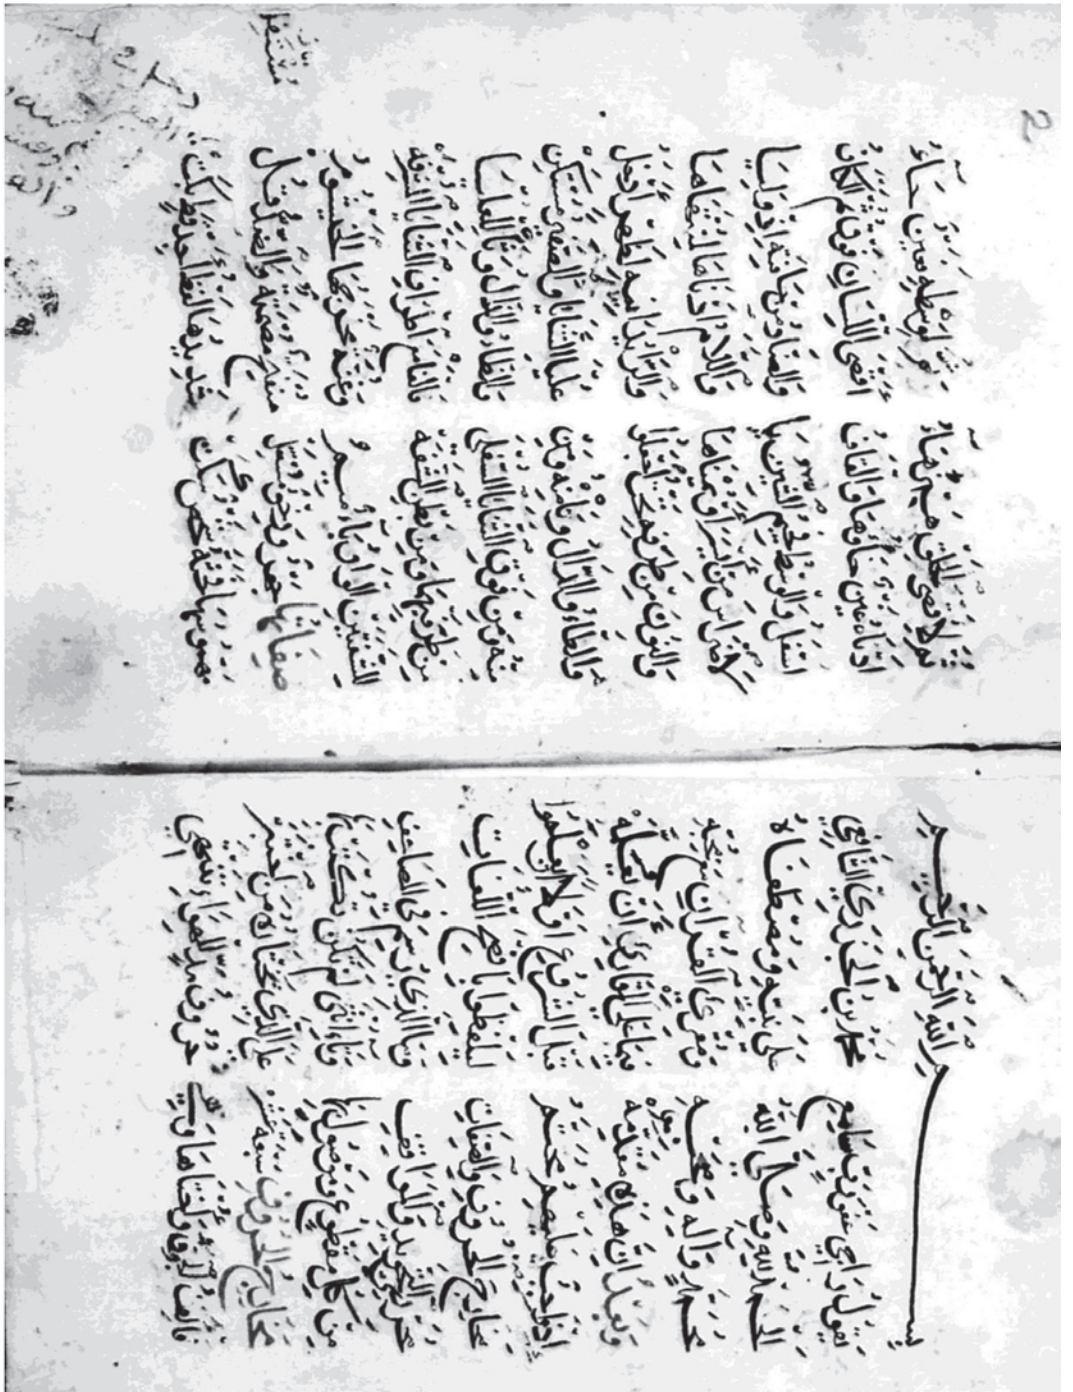 بِسْمِ اللهِ الرَّحْمنِ الرَّحِيمِ
يَقُولُ رَاجِي عَفْوِ رَبٍّ سَامِعِ مُحَمَّدُ بْنُ الْجَزَرِيِّ الشَّافِعِي
الْحَمْدُ لِلّهِ وَصَلَّى اللهُ عَلَى نَبِيِّهِ وَمُصْطَفَاهُ
مُحَمَّدٍ وَآلِهِ وَصَحْبِهِ وَمُقْرِئِ الْقُرْآنِ مَعْ مُحِبِّهِ
وَبَعْدُ إِنَّ هذِهِ مُقَدِّمَهْ فِيمَا عَلَى الْقَارِئِ أَنْ يَعْلَمَهْ
إِذْ وَاجِبٌ عَلَيْهِمُ مُحَتَّمُ قَبْلَ الشُّرُوعِ أَوَّلًا أَنْ يَعْلَمُوا
مَخَارِجَ الْحُرُوفِ وَالصِّفَاتِ لِيَلْفِظُوا بِأَفْصَحِ اللُّغَاتِ
مُحَرِّرِي التَّجْوِيدِ وَالْمَوَاقِفِ وَمَا الَّذِي رُسِمَ فِي الْمَصَاحِفِ
مِنْ كُلِّ مَقْطُوعٍ وَمَوْصُولٍ بِهَا وَتَاءِ أُنْثَى لَمْ تَكُنْ تُكْتَبْ بِهَا
مَخَارِجُ الْحُرُوفِ سَبْعَةَ عَشَرْ عَلَى الَّذِي يَخْتَارُهُ مَنِ اخْتَبَرْ
فَأَلِفُ الْجَوْفِ وَأُخْتَاهَا وَهِي حُرُوفُ مَدٍّ لِلْهَوَاءِ تَنْتَهِي
2
ثُمَّ لِأَقْصَى الْحَلْقِ هَمْزٌ هَاءُ ثُمَّ لِوَسْطِهِ فَعَيْنٌ حَاءُ
أَدْنَاهُ غَيْنٌ خَاؤُهَا وَالْقَافُ أَقْصَى اللِّسَانِ فَوْقُ ثُمَّ الْكَافُ
أَسْفَلُ وَالْوَسْطُ فَجِيمُ الشِّينُ يَا وَالضَّادُ مِنْ حَافَتِهِ إِذْ وَلِيَا
لَاضْرَاسَ مِنْ أَيْسَرَ أَوْ يُمْنَاهَا وَاللَّامُ أَدْنَاهَا لِمُنْتَهَاهَا
وَالنُّونُ مِنْ طَرَفِهِ تَحْتُ اجْعَلُوا وَالرَّا يُدَانِيهِ لِظَهْرٍ أَدْخَلُ
وَالطَّاءُ وَالدَّالُ وَتَا مِنْهُ وَمِنْ عُلْيَا الثَّنَايَا وَالصَّفِيرُ مُسْتَكِنْ
مِنْهُ وَمِنْ فَوْقِ الثَّنَايَا السُّفْلَى وَالظَّاءُ وَالذَّالُ وَثَا لِلْعُلْيَا
مِنْ طَرَفَيْهِمَا وَمِنْ بَطْنِ الشَّفَهْ فَالْفَا مَعَ اطْرَافِ الثَّنَايَا الْمُشْرِفَهْ
لِلشَّفَتَيْنِ الْوَاوُ بَاءٌ مِيمُ وَغُنَّةٌ مَخْرَجُهَا الْخَيْشُومُ
صِفَاتُهَا جَهْرٌ وَرِخْوٌ مُسْتَفِلْ مُنْفَتِحٌ مُصْمَتَةٌ وَالضِّدَّ قُلْ
مَهْمُوسُهَا فَحَثَّهُ شَخْصٌ سَكَتْ شَدِيدُهَا لَفْظُ أَجِدْ قَطٍ بَكَتْ